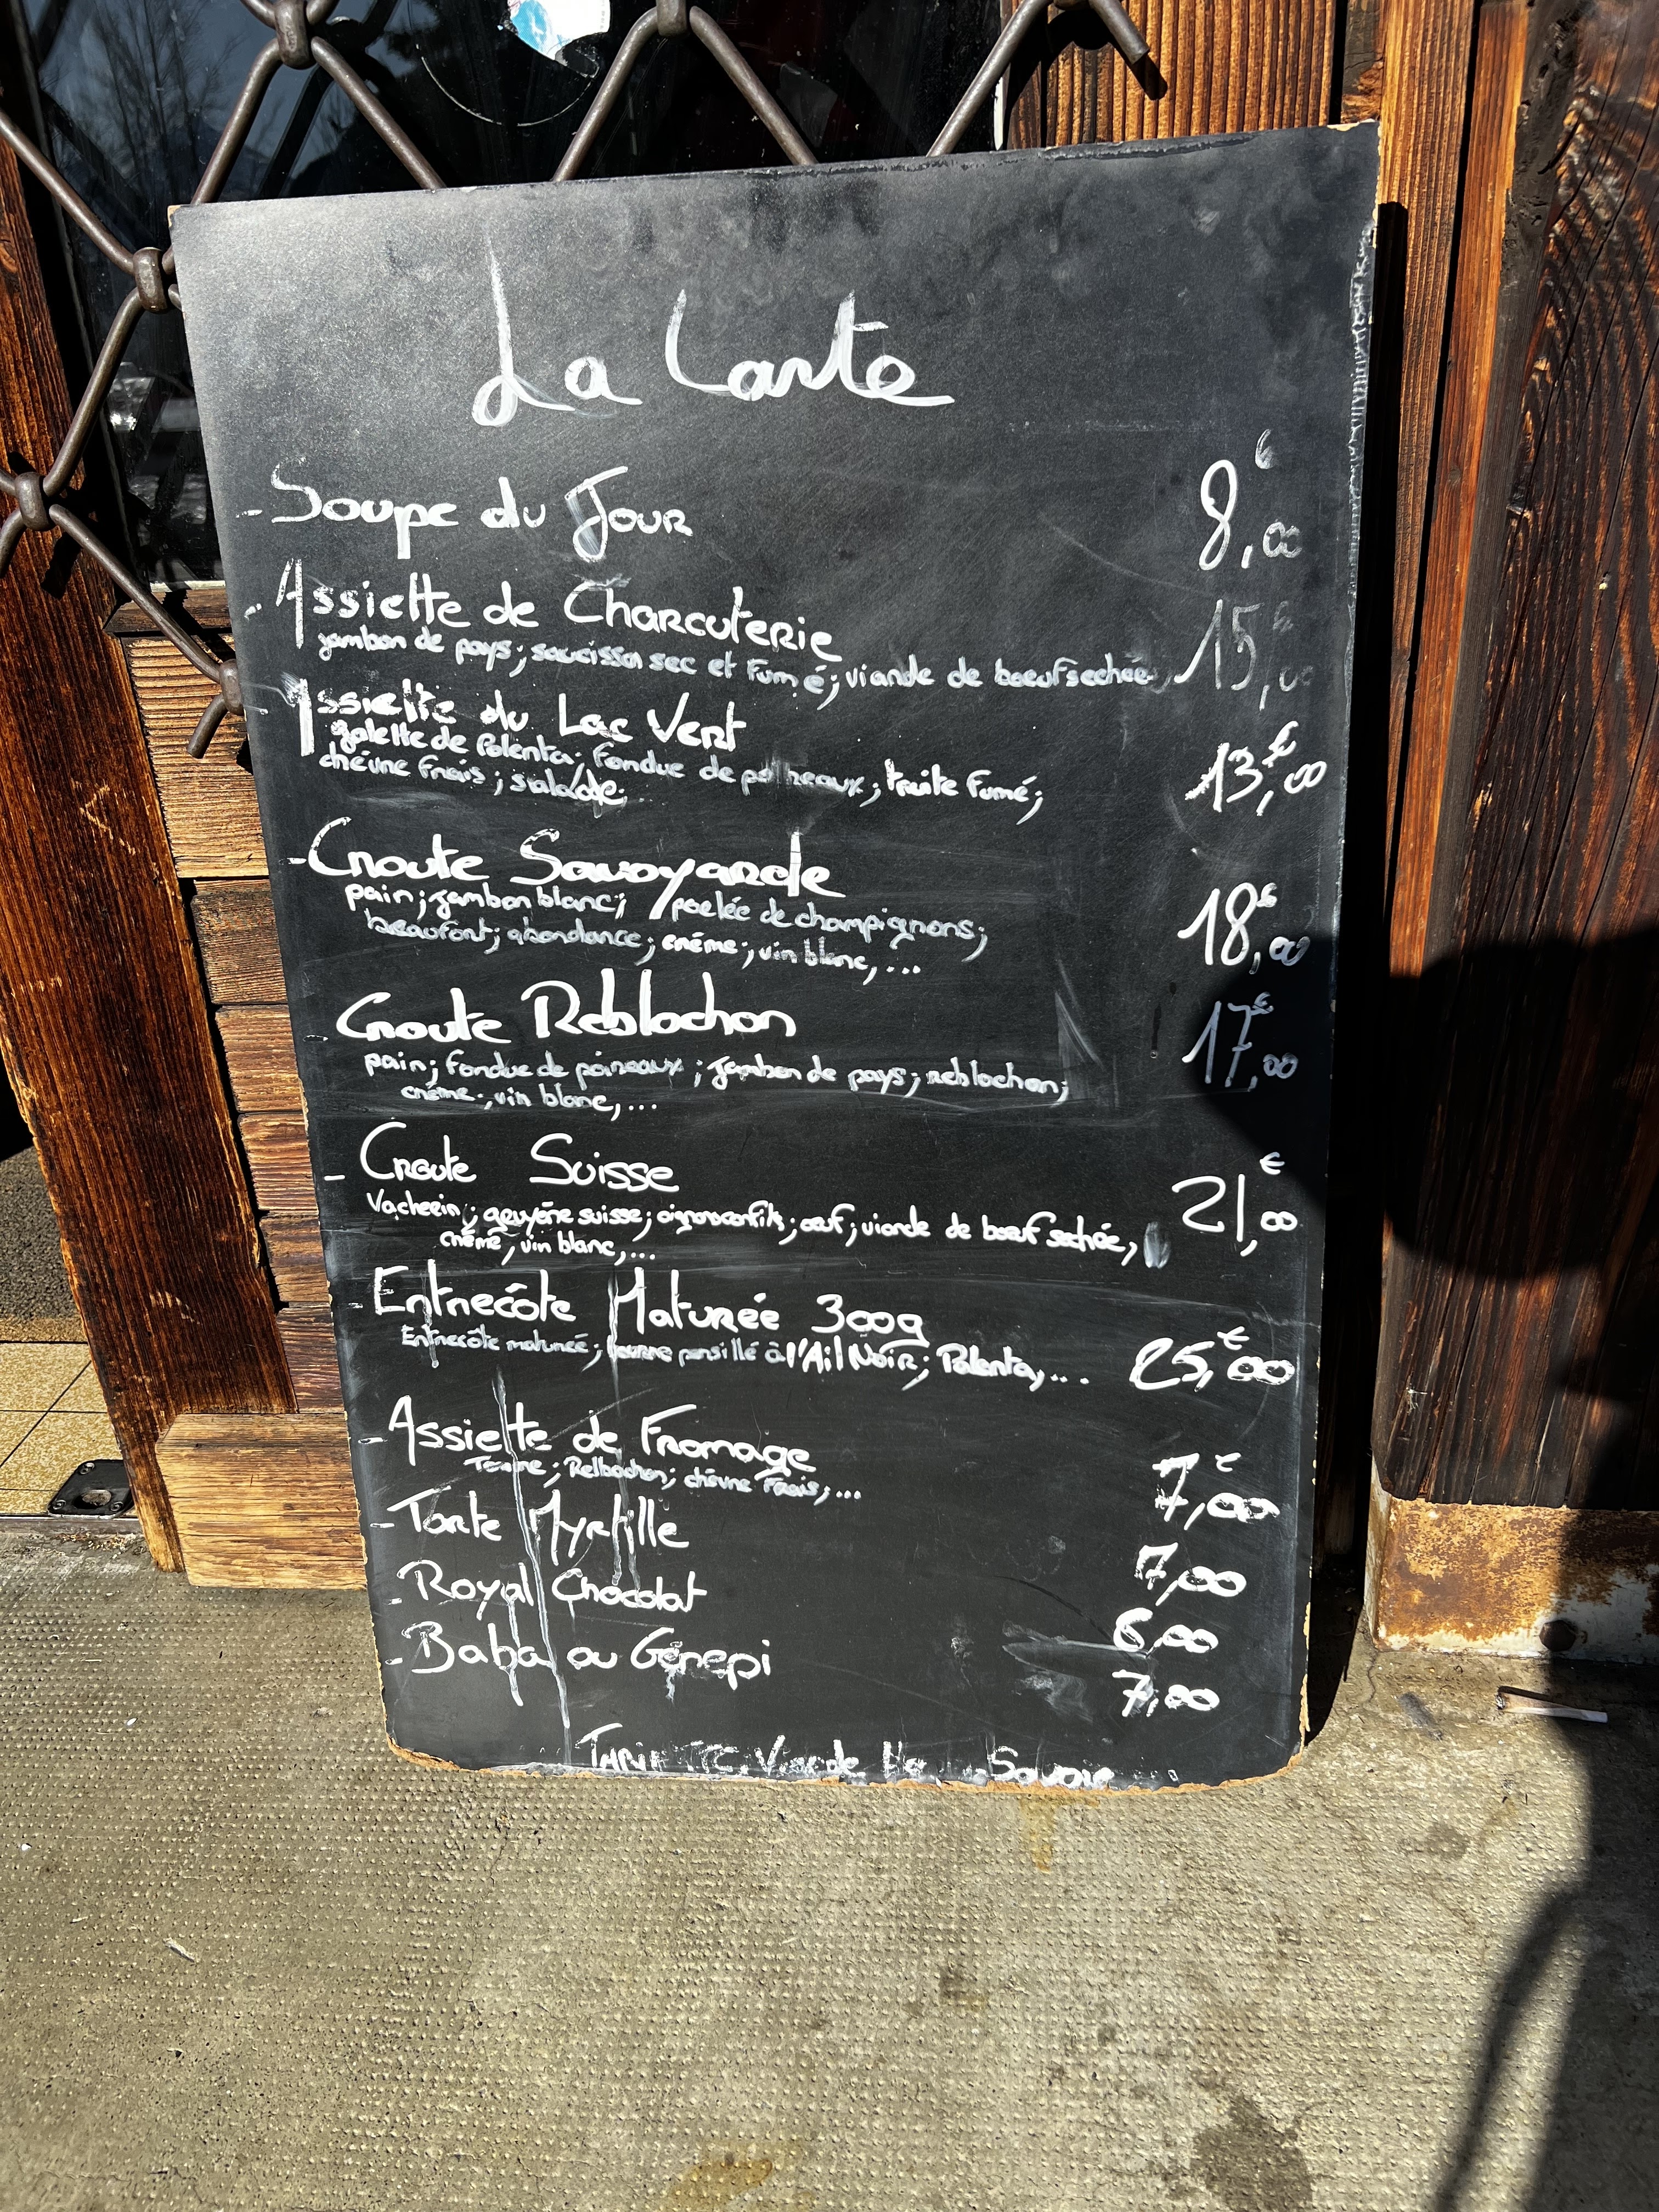 La Carte
- Soupe du Jour 8,00 €
- Assiette de Charcuterie 15,00 €
jambon de pays; saucisson sec et fumé; viande de boeuf sechée
- Assiette du Lac Vert 13,00 €
galette de Polenta; fondue de poireaux; truite fumé;
chévre frais; salade;
- Croute Savoyarde 18,00 €
pain; jambon blanc; poelée de champignons;
beaufort; abondance; créme; vin blanc,...
- Croute Reblochon 17,00 €
pain; fondue de poireaux; jambon de pays; reblochon;
créme, vin blanc,...
- Croute Suisse 21,00 €
Vacherin; gruyére suisse; oignons confits; oeuf; viande de boeuf sechée,
créme, vin blanc,...
- Entrecôte Maturée 300g 25,00 €
Entrecôte maturée; beurre persillé à l'Ail Noir; Polenta,...
- Assiette de Fromage 7,00 €
Tomme; Relbochon; chévre frais,...
- Tarte Myrtille 7,00
- Royal Chocolat 6,00
- Baba au Génepi 7,00
Viande Savoie